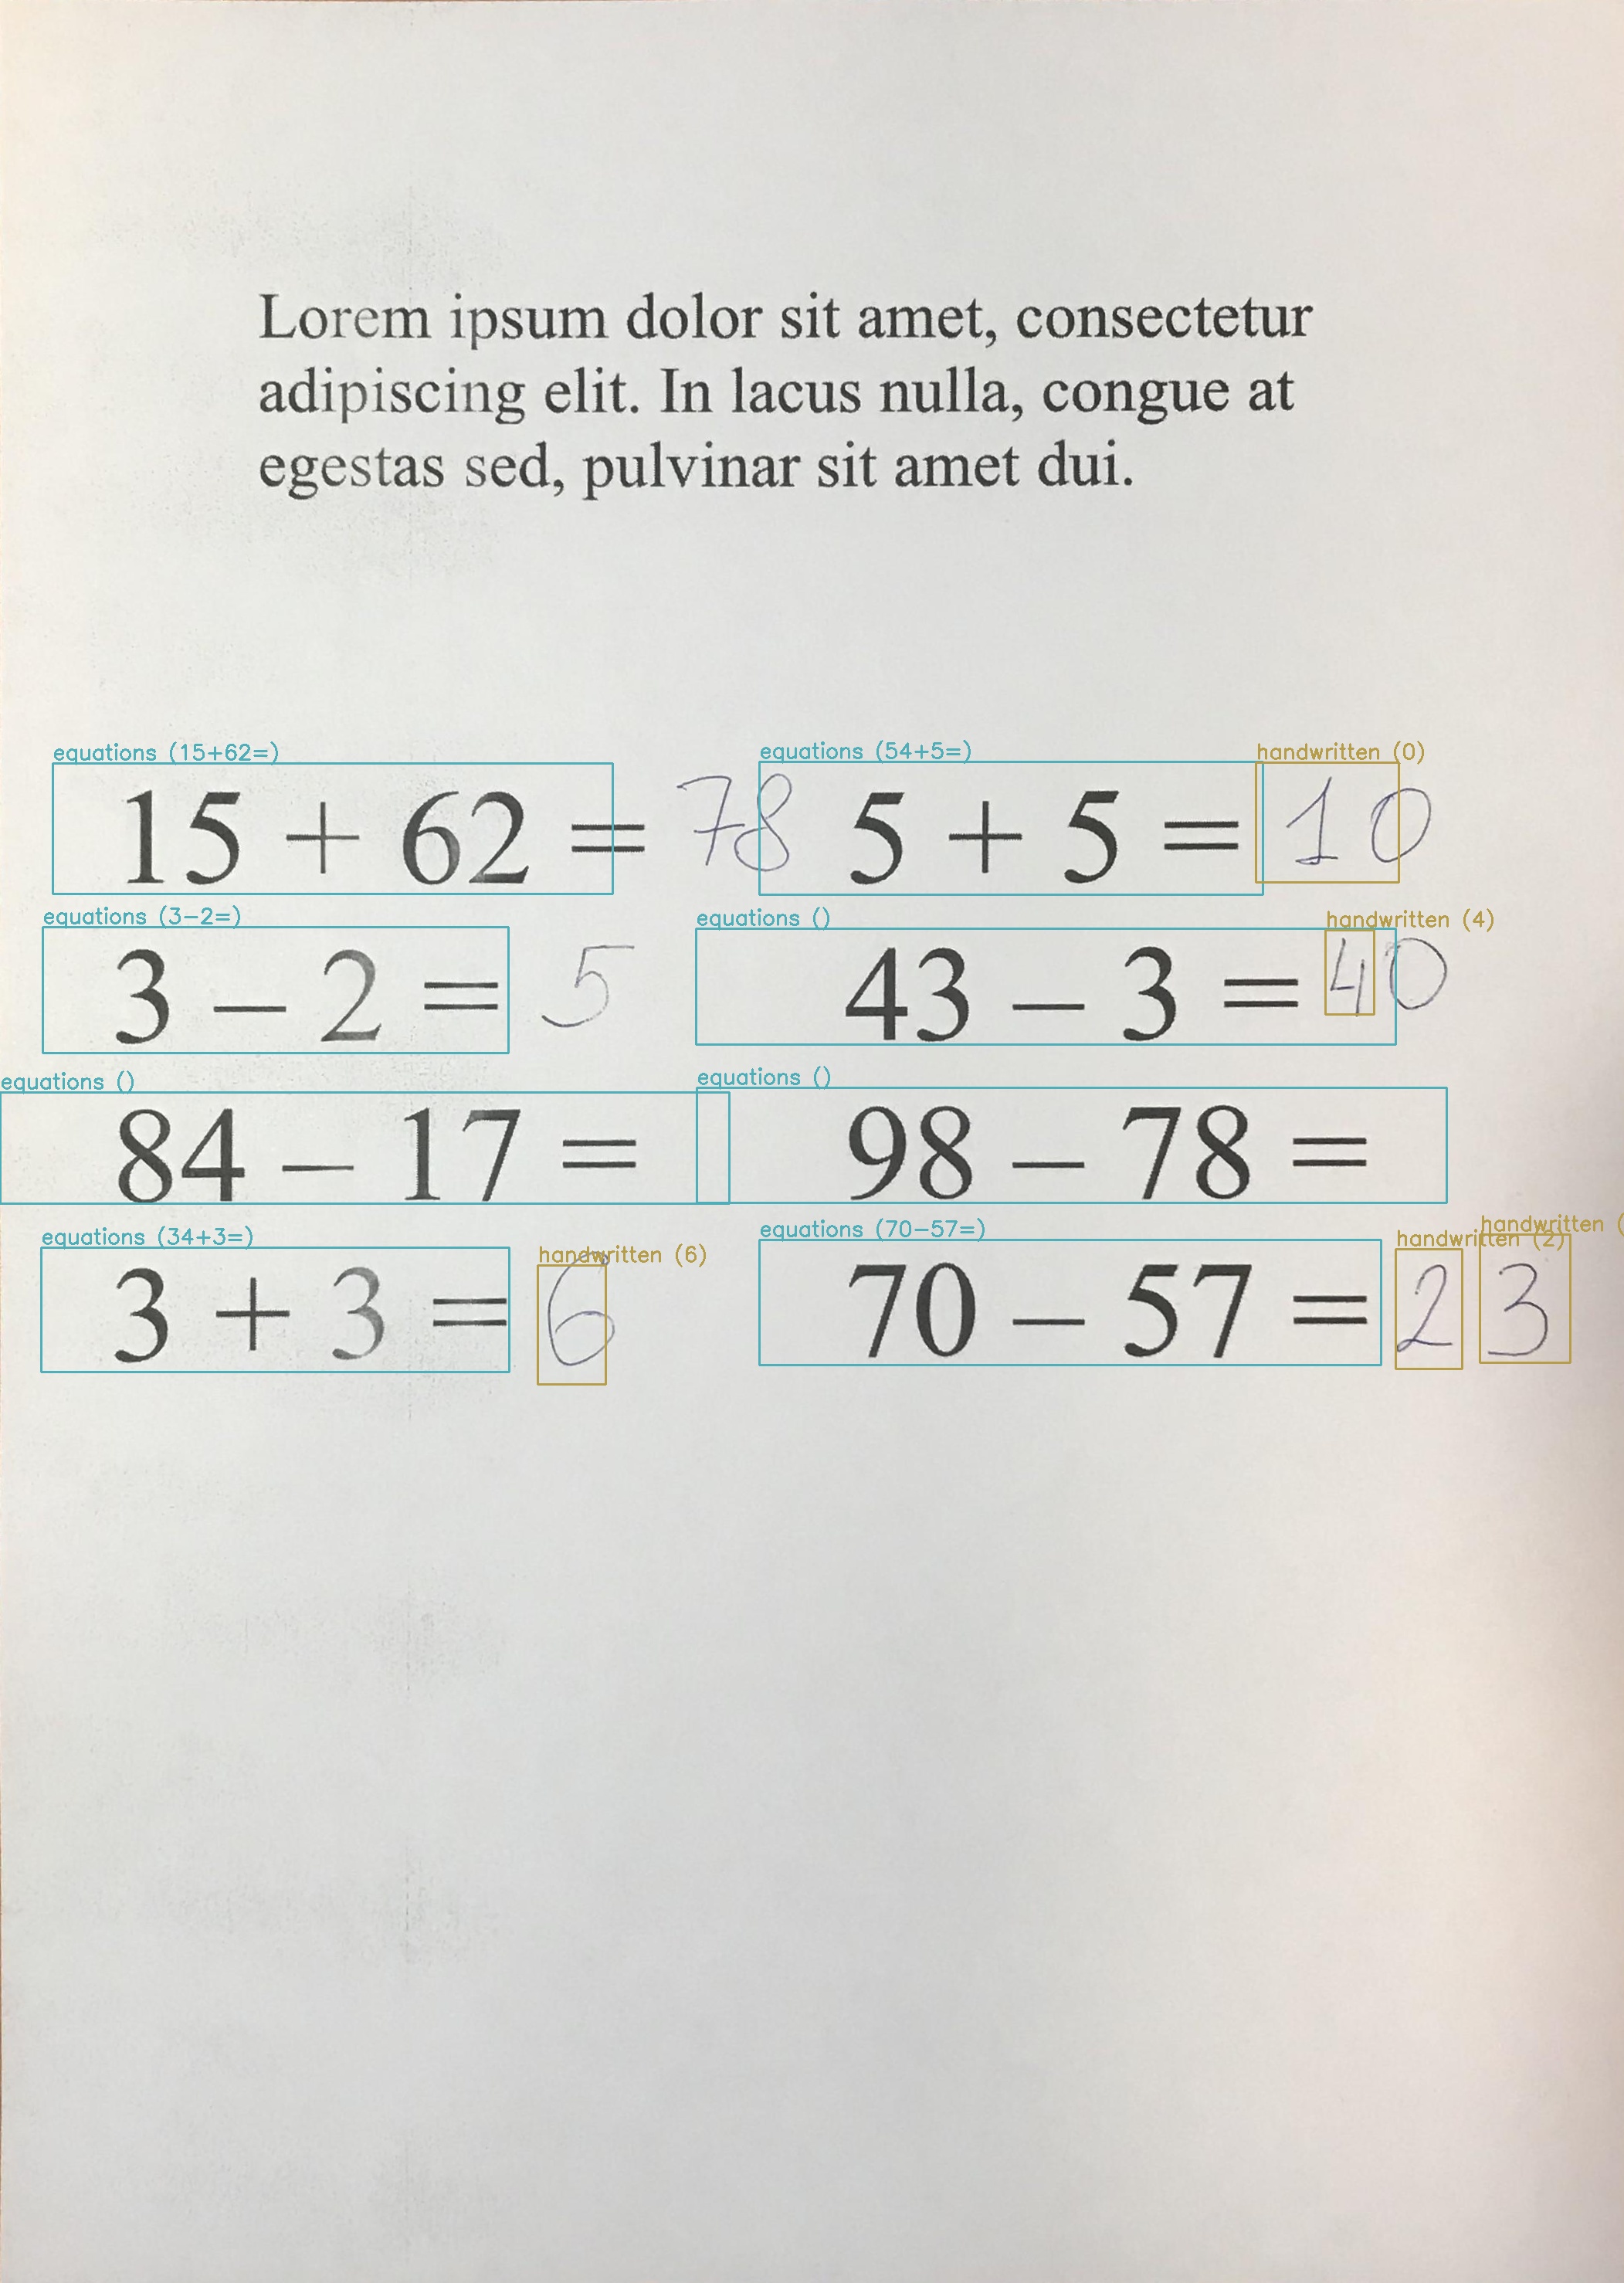 Lorem ipsum dolor sit amet, consectetur
adipiscing elit. In lacus nulla, congue at
egestas sed, pulvinar sit amet dui.
equations (15+62=) equations (54+5=) handwritten (0)
15 + 62 = 78 5 + 5 = 10
equations (3−2=) equations () handwritten (4)
3 – 2 = 5 43 – 3 = 40
equations () equations ()
84 – 17 = 98 – 78 =
equations (34+3=) handwritten (6) equations (70−57=) handwritten (2) handwritten (
3 + 3 = 6 70 – 57 = 23